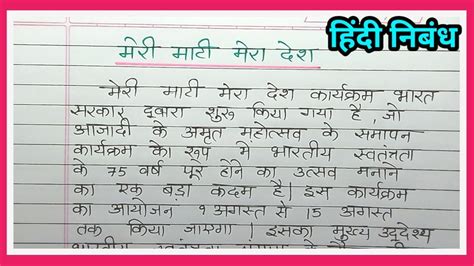 हिंदी निबंध
मेरी माटी मेरा देश
मेरी माटी मेरा देश कार्यक्रम भारत
सरकार द्वारा शुरू किया गया है, जो
आजादी के अमृत महोत्सव के समापन
कार्यक्रम के रूप में भारतीय स्वतंत्रता
के 75 वर्ष पूरे होने का उत्सव मनाने
का एक बड़ा कदम है। इस कार्यक्रम
का आयोजन 9 अगस्त से 15 अगस्त
तक किया जाएगा। इसका मुख्य उद्देश्य
भारतीय